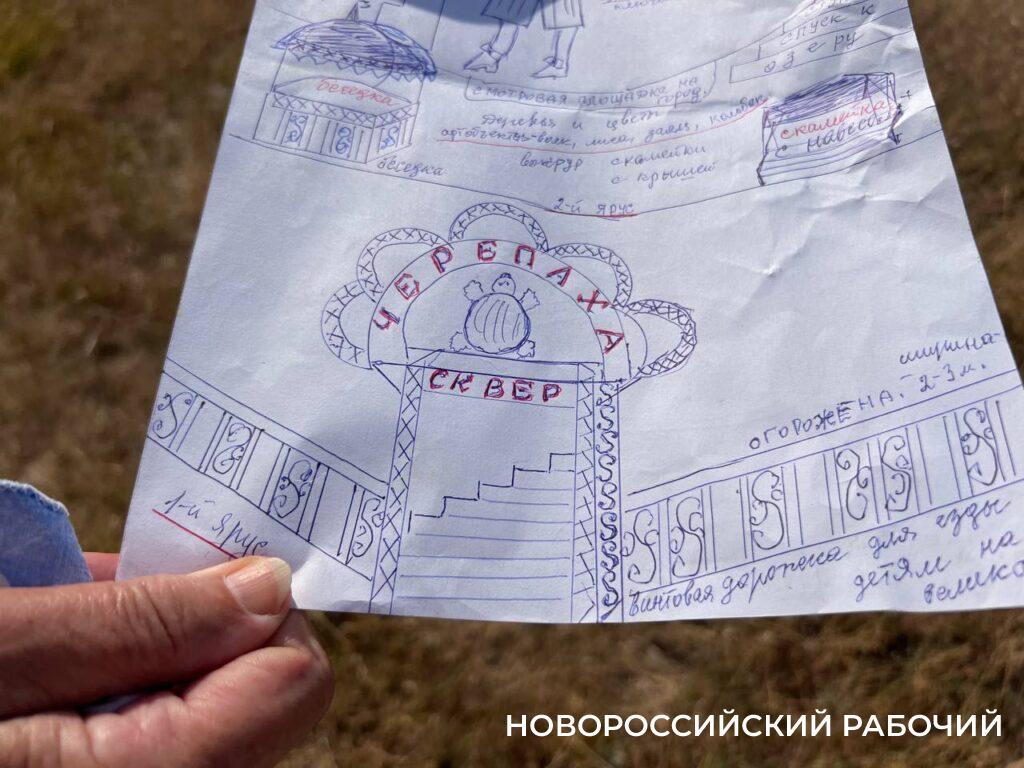 спуск к
озеру
беседка
смотровая площадка на
город.
Деревья и цвет
артобъекты-волк, лиса, заяц,
скамейки
с крышей
скамейка
с навесом
беседка
2-й ярус
ЧЕРЕПАХА
СКВЕР
ширина-
ОГОРОЖЕНА. 2-3 м.
1-й ярус
винтовая дорожка для езды
детям на
велико
НОВОРОССИЙСКИЙ РАБОЧИЙ